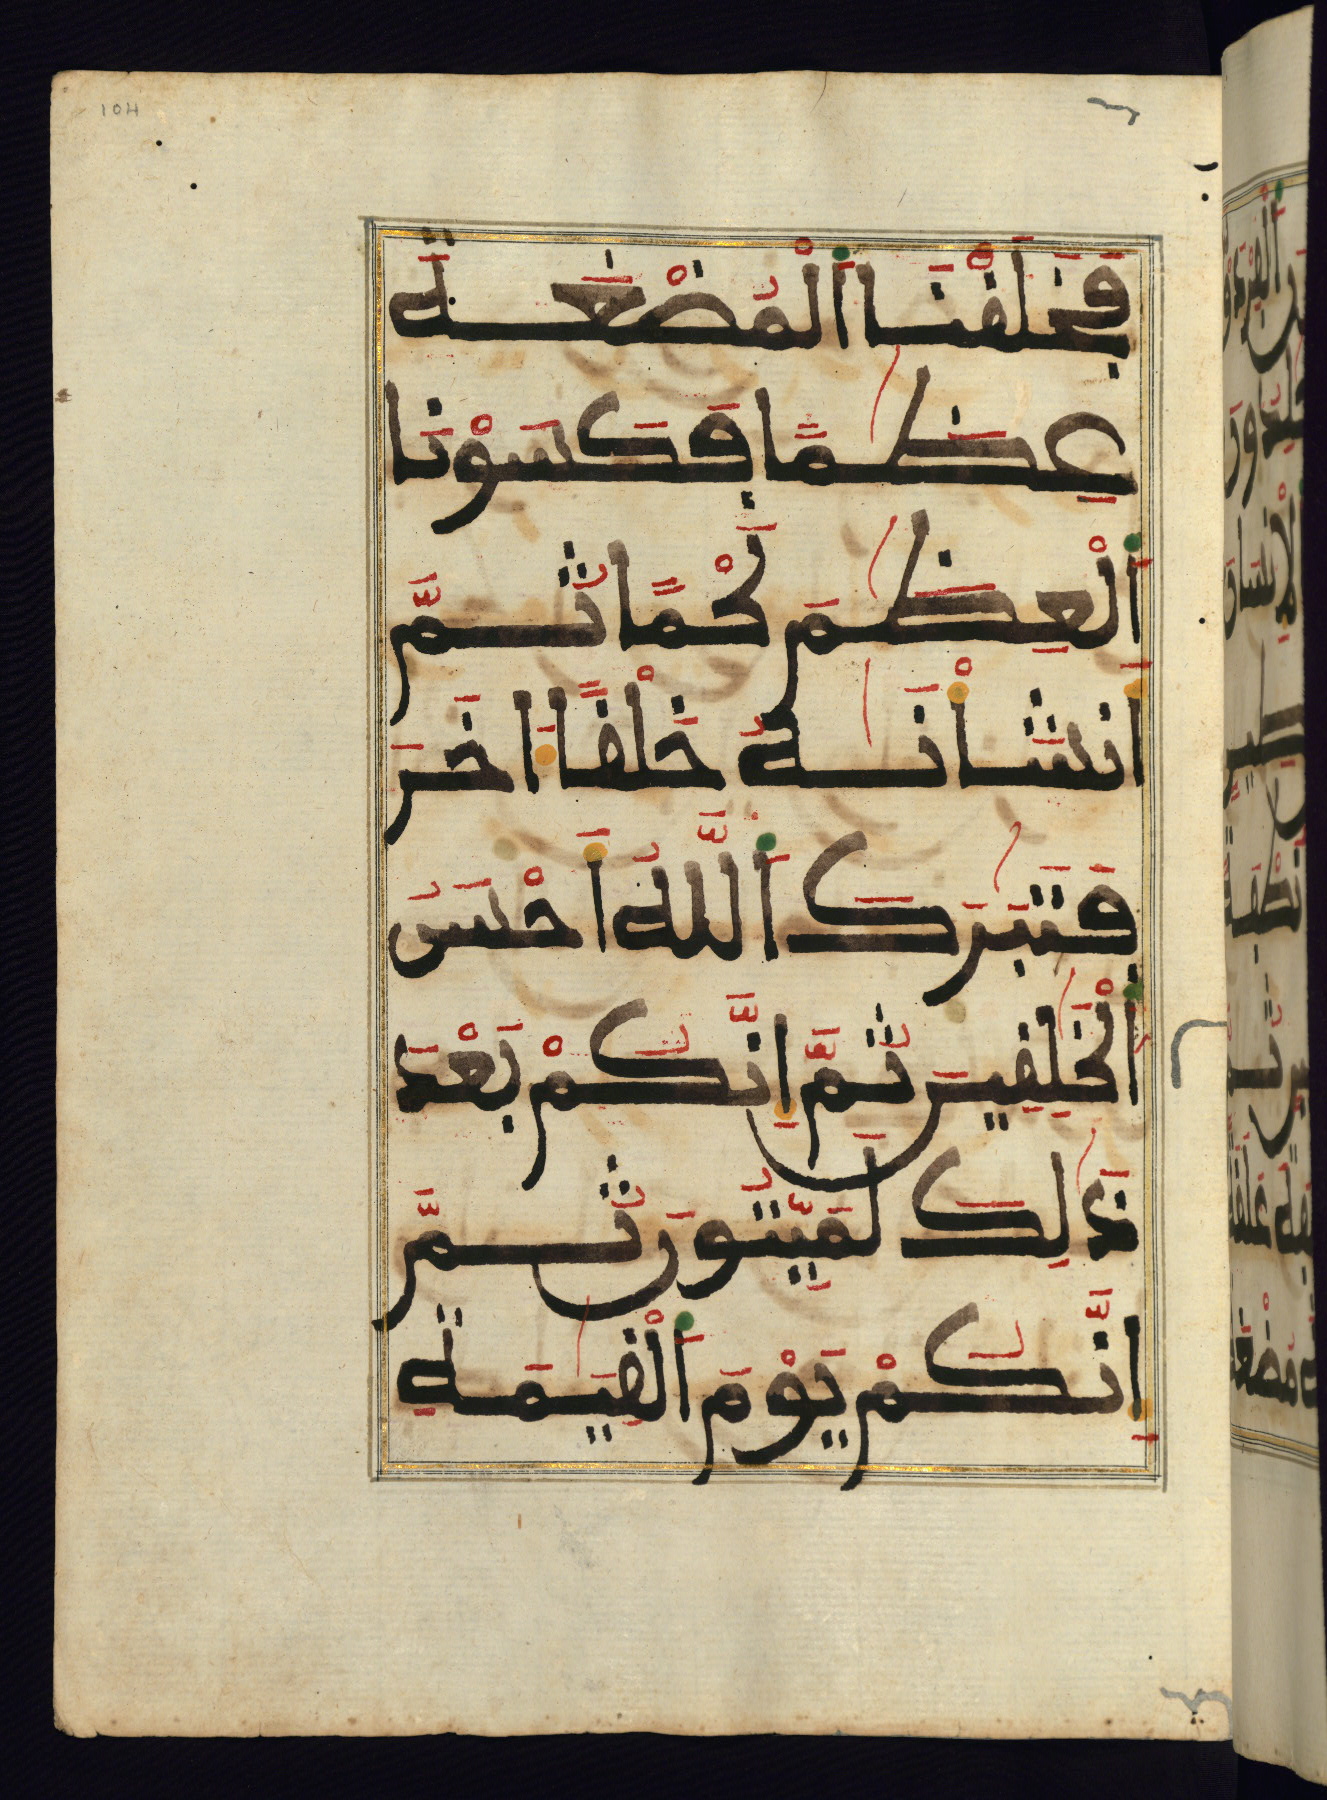 104
فَخَلَقْنَا اَ۬لْمُضْغَةَ
عِظَٰماً فَكَسَوْنَا
اَ۬لْعِظَٰمَ لَحْماً ثُمَّ
أَنشَأْنَٰهُ خَلْقاً ءَاخَرَ
فَتَبَٰرَكَ اَ۬للَّهُ أَحْسَنُ
اَ۬لْخَٰلِقِينَ ثُمَّ إِنَّكُم بَعْدَ
ذَٰلِكَ لَمَيِّتُونَ ثُمَّ
إِنَّكُمْ يَوْمَ اَ۬لْقِيَٰمَةِ